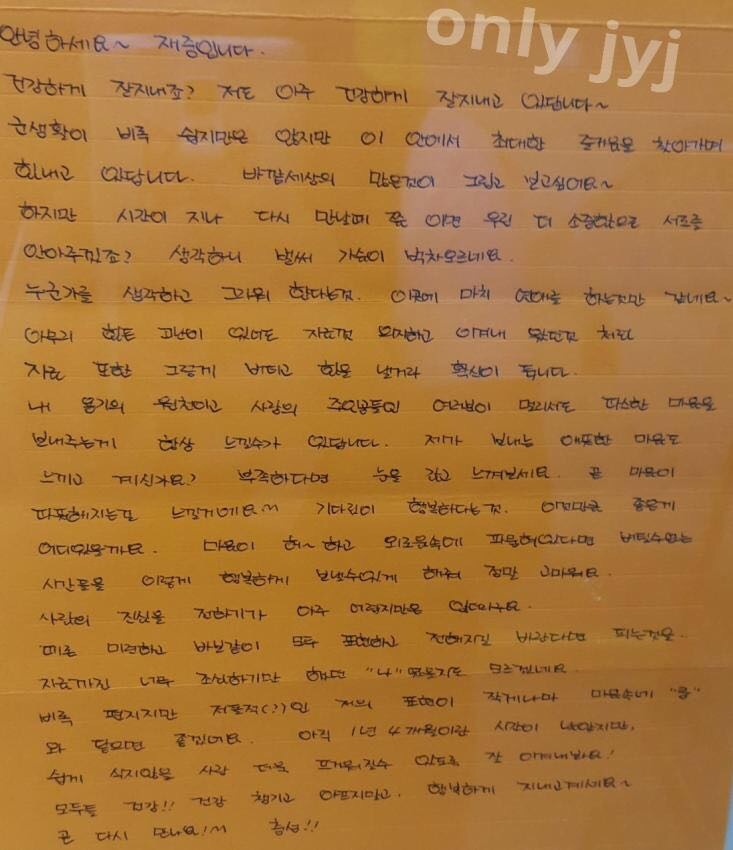 only jyj
안녕하세요~ 재중입니다.
건강하게 잘지내죠? 저도 아주 건강하게 잘지내고 있답니다~
군생활이 비록 쉽지만은 않지만 이 안에서 최대한 즐거움을 찾아가며
힘내고 있답니다. 바깥세상의 많은것이 그립고 보고싶어요~
하지만 시간이 지나 다시 만날때 쯤 이면 우린 더 소중함으로 서로를
안아주겠죠? 생각하니 벌써 가슴이 벅차오르네요.
누군가를 생각하고 그리워 한다는것. 이럴땐 마치 연애를 하는것만 같네요~
아무리 힘든 고난이 있어도 서로 의지하고 이겨내 왔던것 처럼
지금 또한 그렇게 버티고 힘을 낼거라 확신이 듭니다.
내 용기의 원천이고 사랑의 주인공들인 여러분이 멀리서도 따스한 마음을
보내주는게 항상 느낄수가 있답니다. 제가 보내는 애틋한 마음도
느끼고 계신가요? 부족하다면 눈을 감고 느껴보세요. 곧 마음이
따뜻해지는걸 느낄거에요 기다림이 행복하다는것. 이것만큼 좋은게
어디있을까요. 마음이 허~ 하고 외로움속에 파묻혀있다면 버틸수없는
시간들을 이렇게 행복하게 보낼수있게 해줘 정말 고마워요.
사랑의 진심을 전하기가 아주 어렵지만은 않더라구요.
때론 미련하고 바보같이 모두 표현하고 전해지길 바란다면 되는것을.
지금까진 너무 조심하기만 했던 "나" 였을지도 모르겠네요.
비록 편지지만 저돌적(?)인 저의 표현이 작게나마 마음속에 "쿵"
와 닿으면 좋겠어요. 아직 1년 4개월이란 시간이 남았지만,
쉽게 식지않을 사랑 더욱 뜨거워질수 있도록 잘 이겨내봐요!
모두들 건강!! 건강 챙기고 아프지말고. 행복하게 지내고계세요~
곧 다시 만나요! 충성!!